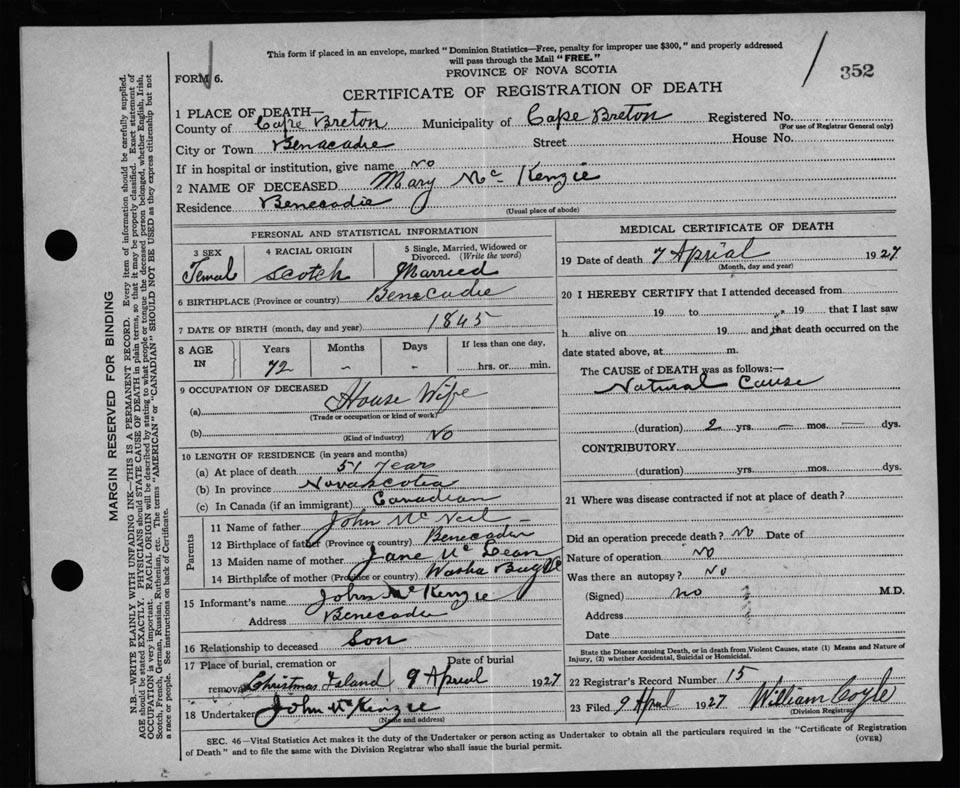 This form if placed in an envelope, marked "Dominion Statistics—Free, penalty for improper use $300," and properly addressed
will pass through the Mail "FREE."
FORM 6.
352
PROVINCE OF NOVA SCOTIA
CERTIFICATE OF REGISTRATION OF DEATH
1 PLACE OF DEATH—
County of Cape Breton Municipality of Cape Breton Registered No.
(For use of Registrar General only)
City or Town Benacadie Street House No.
If in hospital or institution, give name No
2 NAME OF DECEASED Mary Mc Kenzie
Residence Benecadie
(Usual place of abode)
PERSONAL AND STATISTICAL INFORMATION
3 SEX 4 RACIAL ORIGIN 5 Single, Married, Widowed or
Divorced. (Write the word)
Femal Scotch Married
6 BIRTHPLACE (Province or country) Benecadie
7 DATE OF BIRTH (month, day and year) 1845
8 AGE IN Years Months Days If less than one day,
72 – – hrs. or min.
9 OCCUPATION OF DECEASED
(a) House Wife
(Trade or occupation or kind of work)
(b) No
(Kind of industry)
10 LENGTH OF RESIDENCE (in years and months)
(a) At place of death 51 years
(b) In province Nova Scotia
(c) In Canada (if an immigrant) Canadian
Parents
11 Name of father John Mc Neil
12 Birthplace of father (Province or country) Benecadie
13 Maiden name of mother Jane Mc Lean
14 Birthplace of mother (Province or country) Washa Buck
15 Informant's name John McKenzie
Address Benecadie
16 Relationship to deceased Son
17 Place of burial, cremation or Date of burial
removal Christmas Island 9 Aprial 1927
18 Undertaker John McKenzie
(Name and address)
MEDICAL CERTIFICATE OF DEATH
19 Date of death 7 Aprial 1927
(Month, day and year)
20 I HEREBY CERTIFY that I attended deceased from
19 to 19 that I last saw
h alive on 19 and that death occurred on the
date stated above, at m.
The CAUSE of DEATH was as follows:—
Natural Cause
(duration) 2 yrs. — mos. — dys.
CONTRIBUTORY.
(duration) yrs. mos. dys.
21 Where was disease contracted if not at place of death?
Did an operation precede death? No Date of
Nature of operation No
Was there an autopsy? No
(Signed) no M.D.
Address
Date
State the Disease causing Death, or in death from Violent Causes, state (1) Means and Nature of
Injury, (2) whether Accidental, Suicidal or Homicidal.
22 Registrar's Record Number 15
23 Filed 9 April 1927 William Coyle
(Division Registrar)
SEC. 46—Vital Statistics Act makes it the duty of the Undertaker or person acting as Undertaker to obtain all the particulars required in the "Certificate of Registration
of Death" and to file the same with the Division Registrar who shall issue the burial permit.
(OVER)
MARGIN RESERVED FOR BINDING
N.B.—WRITE PLAINLY, WITH UNFADING INK—THIS IS A PERMANENT RECORD. Every item of information should be carefully supplied.
AGE should be stated EXACTLY. PHYSICIANS should STATE CAUSE OF DEATH in plain terms, so that it may be properly classified. Exact statement of
OCCUPATION is very important. RACIAL ORIGIN will be described by stating to what people or tongue the deceased person belonged, whether English, Irish,
Scotch, French, German, Russian, Ruthenian, etc. The terms "AMERICAN" or "CANADIAN" SHOULD NOT BE USED as they express citizenship but not
a race or people. See instructions on back of Certificate.